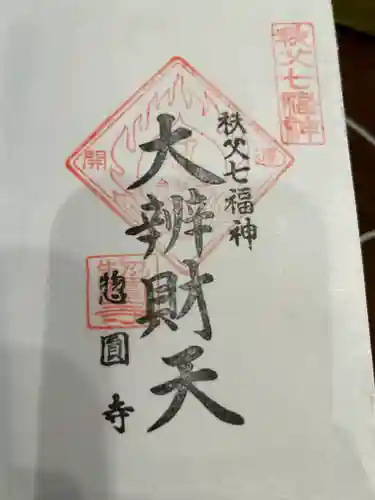 秩父七福神
秩父七福神
開
運
大辨財天
惣圓寺